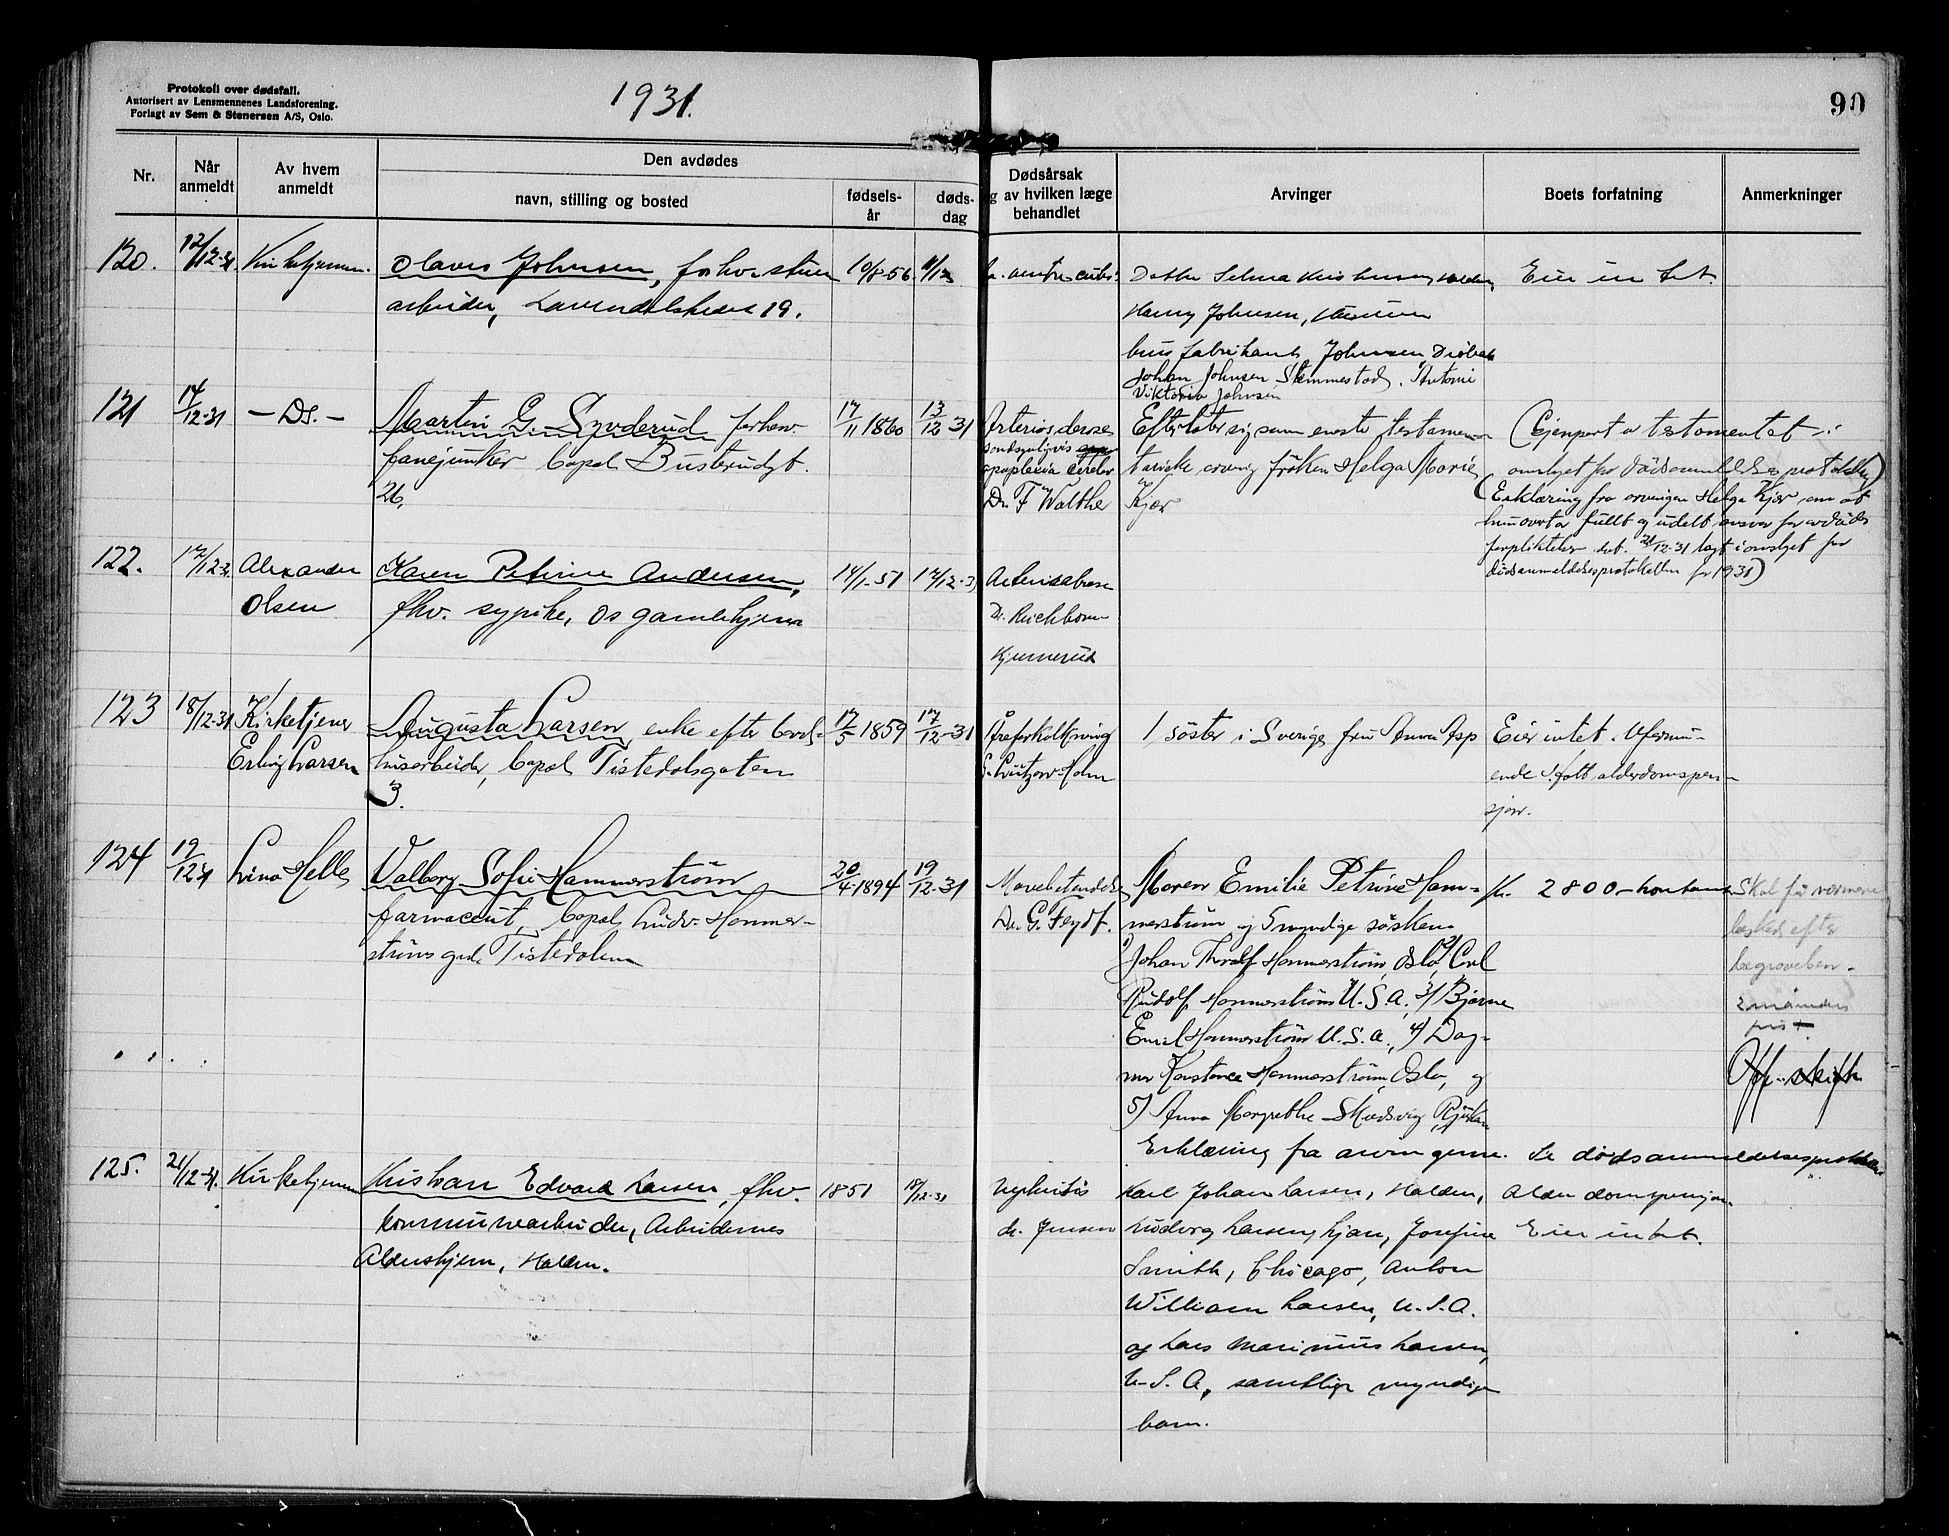 Protokoll over dødsfall.
Autorisert av Lensmennenes Landsforening.
Forlagt av Sem & Stenersen A/S, Oslo.
1931.
90
Nr.
Når anmeldt
Av hvem anmeldt
Den avdødes
navn, stilling og bosted
fødselsår
dødsdag
Dødsårsak
og av hvilken læge
behandlet
Arvinger
Boets forfatning
Anmerkninger
120.
12/12-31
Kirketjeneren.
Olaves Johnsen, forhv. stuer
arbeider,
19.
10/8-56
Datter Selma Kristiansen, Halden,
Harry Johnsen,
brusfabrikant Johnsen, Drøbak
Johan Johnsen, Slemmestad. Antoni
Viktoria Johnsen
Eier intet.
121
14/12-31
– Ds. –
Martin G. Syverud forhenv.
fanejunker, bopel Busterudgt.
26.
17/11 1860
13/12 31
Arteriosclerose
sandsynligvis
apoplexia cerebri
Dr. F Walther
Efterlater sig som eneste testamen-
tariske arving frøken Helga Marie
Kjær
(Gjenpart av testamentet i
omslget for dødsanmeldelsesprotokollen)
(Erklæring fra arvingen Helga Kjær om at
hun overtar fullt og udelt ansvar for avdødes
forpliktelser dat. 21/12-31 lagt i omslget for
dødsanmeldelsesprotokollen for 1931)
122.
17/12-31
Alexander
Olsen
Karen Petrine Andersen,
fhv. sypike, Os gamlehjem
14/1-51
17/12-31
Dr. Reichborn-
Kjennerud
123
18/12-31
Kirketjener
Erling Larsen
Augusta Larsen, enke efter bruks-
husarbeider, bopel Tistedalsgaten
3.
17/5 1859
17/12-31
Åreforkalkning
Dr. Lützow-Holm
1 søster i Sverige, fru Anna Asp
Eier intet. Uformu-
ende. Hatt alderdomspen-
sjon.
124
19/12 31
Lina Helle
Valborg Sofie Hammerstrøm
farmaceut, bopel Ludv. Hammer-
strøms gård, Tistedalen
20/4 1894
19/12-31
Dr. G. Feydt.
Moren Emilie Petrine Ham-
merstrøm og 5 myndige søsken
1) Johan Thoralf Hammerstrøm, Oslo, 2) Carl
Rudolf Hammerstrøm U.S.A., 3) Bjarne
Emil Hammerstrøm U.S.A., 4) Dag-
mar Konstance Hammerstrøm, Oslo, og
5) Anna Margrethe Skadsvig, Rjukan
Erklæring fra arvingerne. Se dødsanmeldelsesprotokollen
Kr. 2800,- kontant
Skal få nærmere
beskjed efter
begravelsen.
2 måneder
frist
Off. skifte
125.
21/12-31.
Kirketjeneren
Kristian Edvard Larsen, fhv.
kommunearbeider, Arbeidernes
Aldershjem, Halden.
1851
18/12-31
Nephritis
dr. Jensen
Karl Johan Larsen, Halden,
Ludvig Larsen, hjem, Josefine
Smith, Chicago, Anton
William Larsen, U.S.A.
og Lars Marinius Larsen,
U.S.A., samtlige myndige
barn.
Alderdomspensjon.
Eier intet.